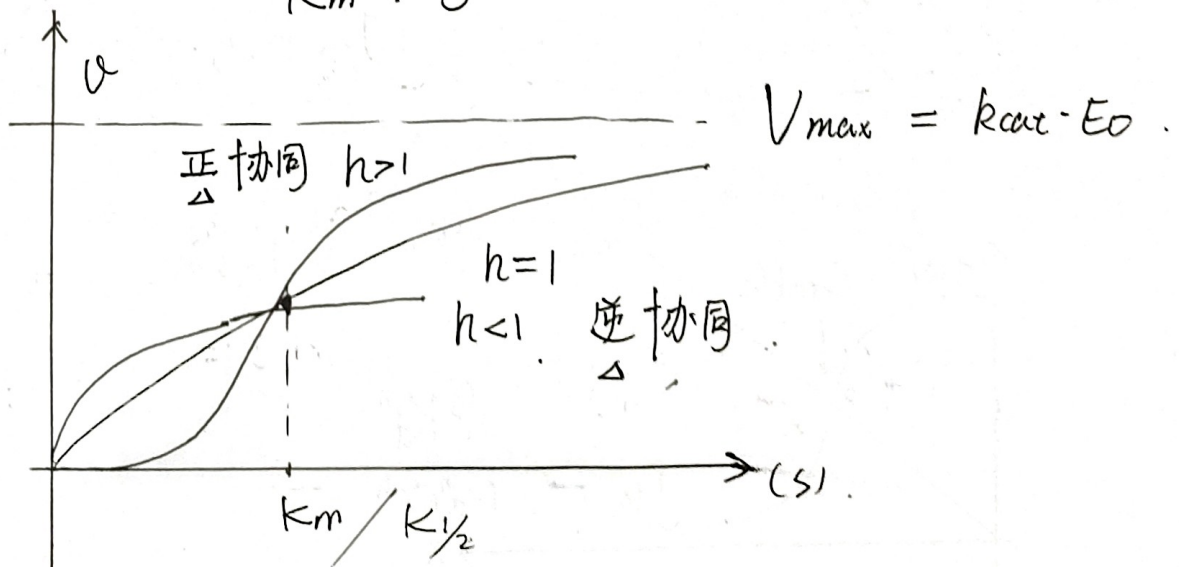 Km
v
Vmax = kcat · E0 .
正协同 h>1
h=1
h<1 . 逆协同 .
(S) .
Km / K1/2